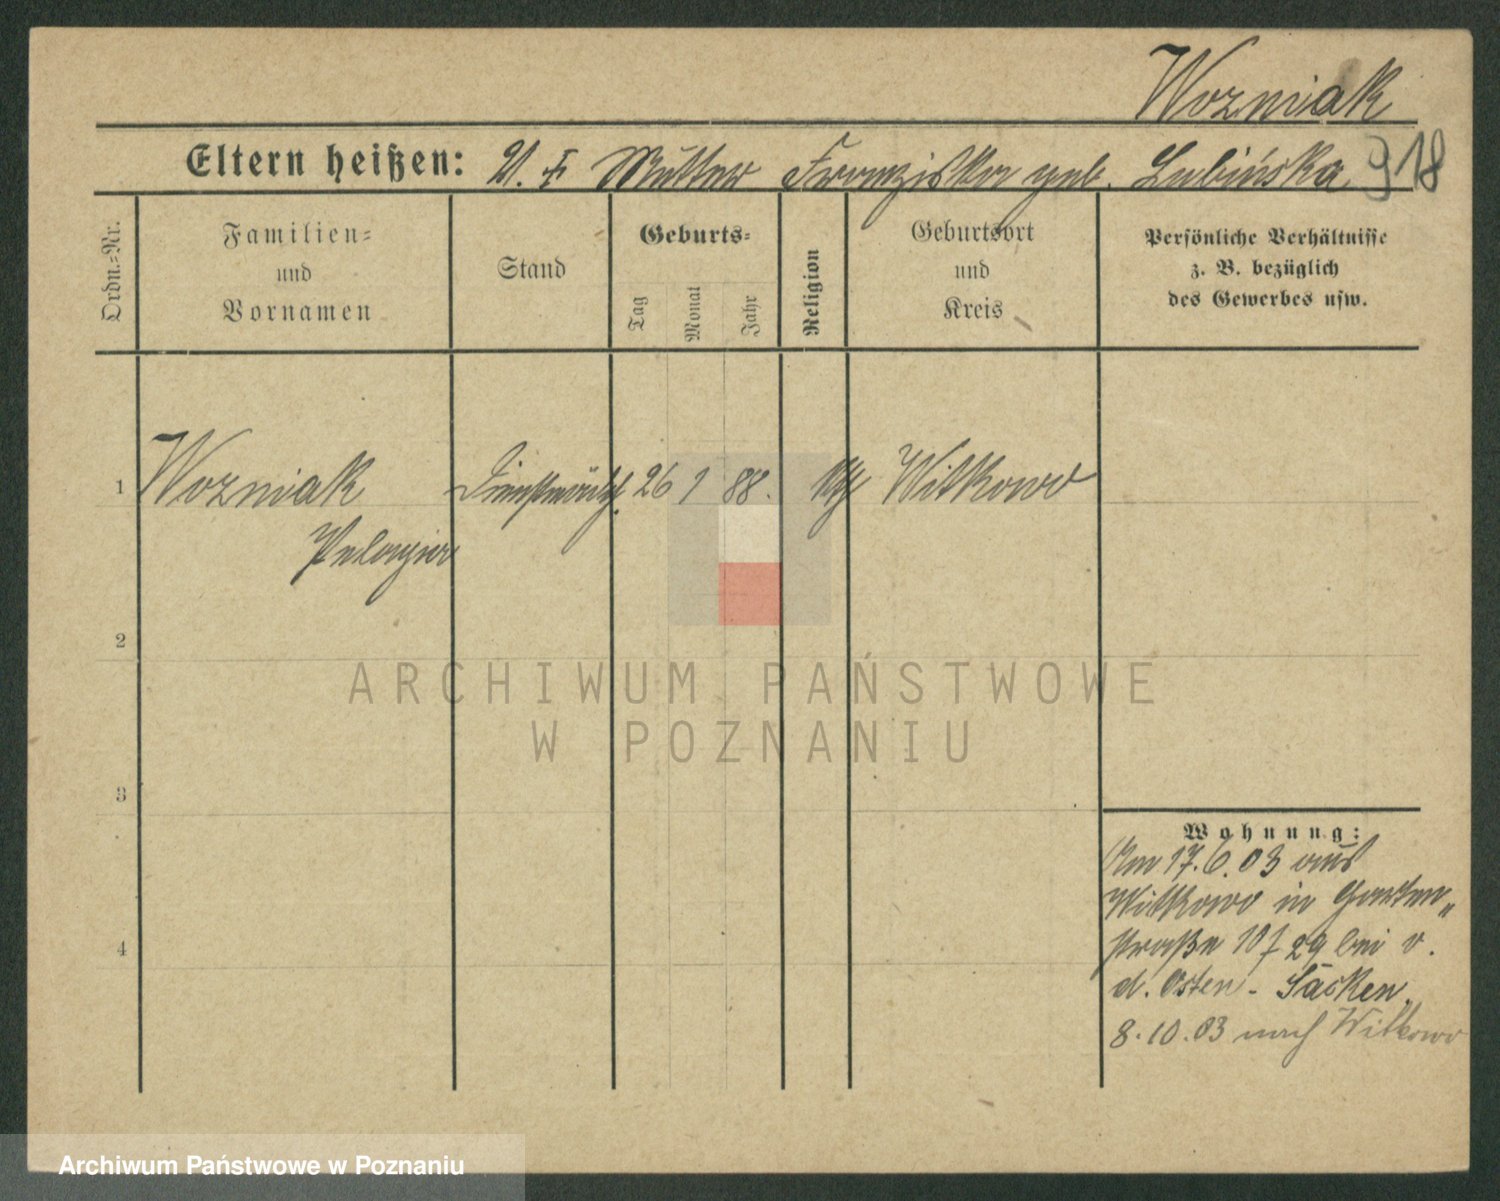 Wozniak
Eltern heißen: Mutter Franziska geb. Lubińska 918
Ordn.-Nr.
Familien-
und
Vornamen
Stand
Geburts-
Tag
Monat
Jahr
Religion
Geburtsort
und
Kreis
Persönliche Verhältnisse
z. B. bezüglich
des Gewerbes usw.
1 Wozniak Dienstmädch. 26 1 88. kth Witkowo
Pelagia
2
ARCHIWUM PAŃSTWOWE
W POZNANIU
3
Wohnung:
Am 17.6.03 aus
Witkowo in Garten„
straße 10 f 29 bei v.
4
d. Osten - Sacken.
8.10.03 nach Witkowo
Archiwum Państwowe w Poznaniu